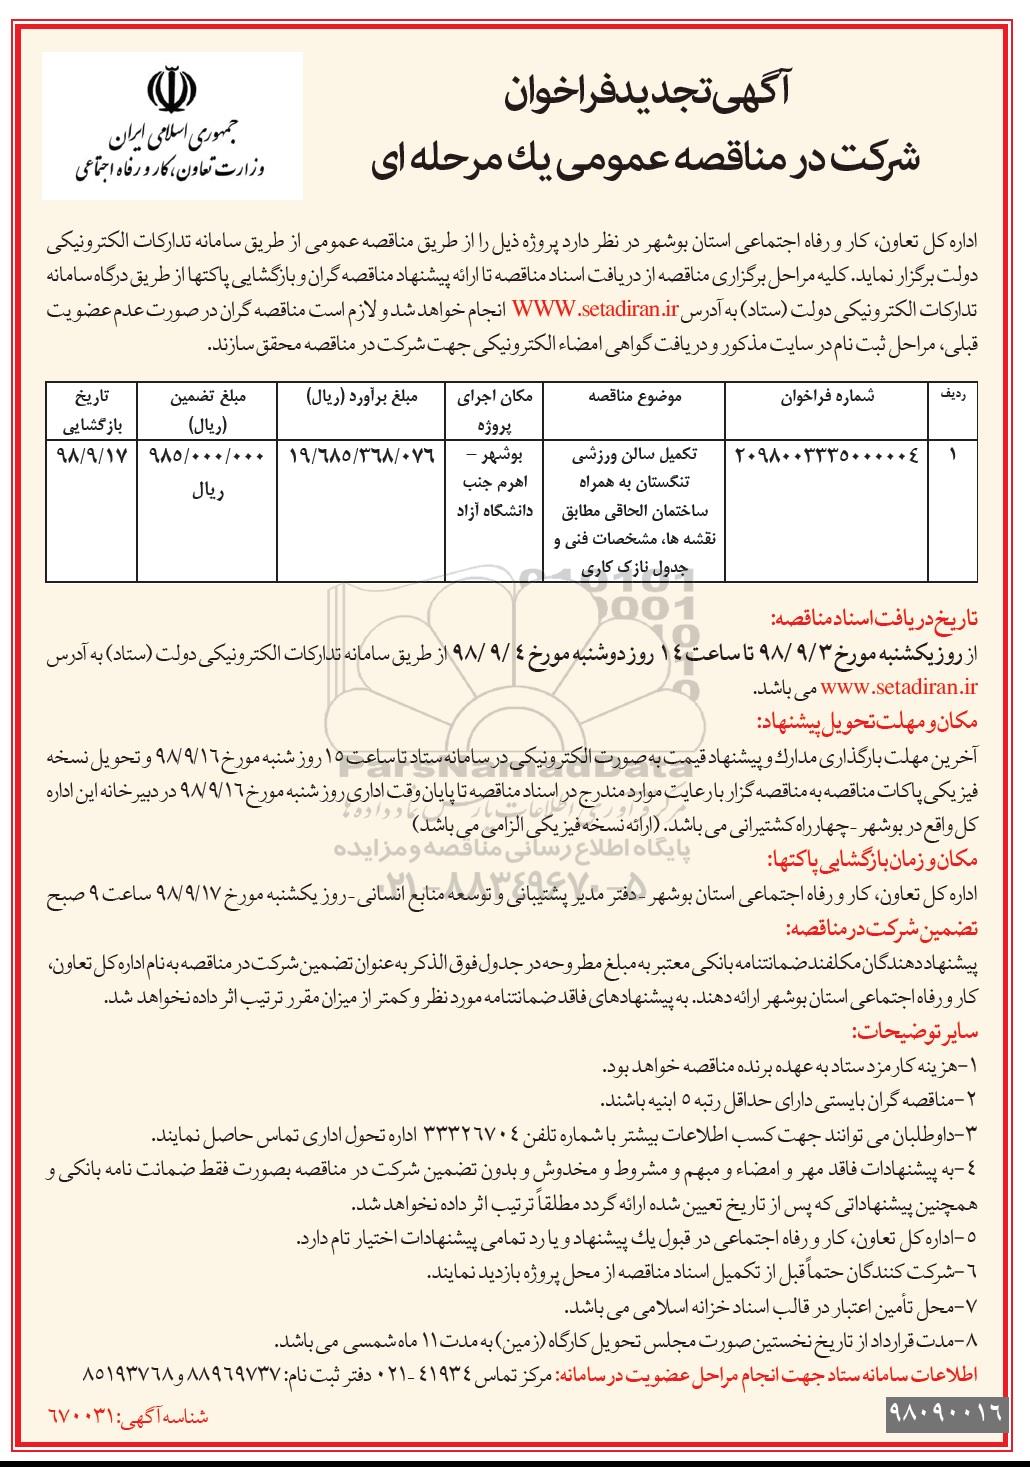 جمهوری اسلامی ایران
وزارت تعاون، کار و رفاه اجتماعی
آگهی تجدید فراخوان
شرکت در مناقصه عمومی یك مرحله ای
اداره کل تعاون، کار و رفاه اجتماعی استان بوشهر در نظر دارد پروژه ذیل را از طریق مناقصه عمومی از طریق سامانه تدارکات الکترونیکی
دولت برگزار نماید. کلیه مراحل برگزاری مناقصه از دریافت اسناد مناقصه تا ارائه پیشنهاد مناقصه گران و بازگشایی پاکتها از طریق درگاه سامانه
تدارکات الکترونیکی دولت (ستاد) به آدرس WWW.setadiran.ir انجام خواهد شد و لازم است مناقصه گران در صورت عدم عضویت
قبلی، مراحل ثبت نام در سایت مذکور و دریافت گواهی امضاء الکترونیکی جهت شرکت در مناقصه محقق سازند.
ردیف	شماره فراخوان	موضوع مناقصه	مکان اجرای پروژه	مبلغ برآورد (ریال)	مبلغ تضمین (ریال)	تاریخ بازگشایی
۱	۲۰۹۸۰۰۳۳۳۵۰۰۰۰۰۴	تکمیل سالن ورزشی تنگستان به همراه ساختمان الحاقی مطابق نقشه ها، مشخصات فنی و جدول نازک کاری	بوشهر – اهرم جنب دانشگاه آزاد	۱۹/۶۸۵/۳۶۸/۰۷۶	۹۸۵/۰۰۰/۰۰۰ ریال	۹۸/۹/۱۷
تاریخ دریافت اسناد مناقصه:
از روز یکشنبه مورخ ۹۸/۹/۳ تا ساعت ۱۴ روز دوشنبه مورخ ۹۸/۹/۴ از طریق سامانه تدارکات الکترونیکی دولت (ستاد) به آدرس
www.setadiran.ir می باشد.
مکان و مهلت تحویل پیشنهاد:
آخرین مهلت بارگذاری مدارك و پیشنهاد قیمت به صورت الکترونیکی در سامانه ستاد تا ساعت ۱۵ روز شنبه مورخ ۹۸/۹/۱۶ و تحویل نسخه
فیزیکی پاکات مناقصه به مناقصه گزار با رعایت موارد مندرج در اسناد مناقصه تا پایان وقت اداری روز شنبه مورخ ۹۸/۹/۱۶ در دبیرخانه این اداره
کل واقع در بوشهر - چهارراه کشتیرانی می باشد. (ارائه نسخه فیزیکی الزامی می باشد)
مکان و زمان بازگشایی پاکتها:
اداره کل تعاون، کار و رفاه اجتماعی استان بوشهر - دفتر مدیر پشتیبانی و توسعه منابع انسانی - روز یکشنبه مورخ ۹۸/۹/۱۷ ساعت ۹ صبح
تضمین شرکت در مناقصه:
پیشنهاد دهندگان مکلفند ضمانتنامه بانکی معتبر به مبلغ مطروحه در جدول فوق الذکر به عنوان تضمین شرکت در مناقصه به نام اداره کل تعاون،
کار و رفاه اجتماعی استان بوشهر ارائه دهند. به پیشنهادهای فاقد ضمانتنامه مورد نظر و کمتر از میزان مقرر ترتیب اثر داده نخواهد شد.
سایر توضیحات:
۱-هزینه کارمزد ستاد به عهده برنده مناقصه خواهد بود.
۲-مناقصه گران بایستی دارای حداقل رتبه ۵ ابنیه باشند.
۳-داوطلبان می توانند جهت کسب اطلاعات بیشتر با شماره تلفن ۳۳۳۲۶۷۰۴ اداره تحول اداری تماس حاصل نمایند.
۴-به پیشنهادات فاقد مهر و امضاء و مبهم و مشروط و مخدوش و بدون تضمین شرکت در مناقصه بصورت فقط ضمانت نامه بانکی و
همچنین پیشنهاداتی که پس از تاریخ تعیین شده ارائه گردد مطلقاً ترتیب اثر داده نخواهد شد.
۵-اداره کل تعاون، کار و رفاه اجتماعی در قبول یك پیشنهاد و یا رد تمامی پیشنهادات اختیار تام دارد.
۶-شرکت کنندگان حتماً قبل از تکمیل اسناد مناقصه از محل پروژه بازدید نمایند.
۷-محل تأمین اعتبار در قالب اسناد خزانه اسلامی می باشد.
۸-مدت قرارداد از تاریخ نخستین صورت مجلس تحویل کارگاه (زمین) به مدت ۱۱ ماه شمسی می باشد.
اطلاعات سامانه ستاد جهت انجام مراحل عضویت در سامانه: مرکز تماس ۴۱۹۳۴ -۰۲۱ دفتر ثبت نام: ۸۸۹۶۹۷۳۷ و ۸۵۱۹۳۷۶۸
شناسه آگهی: ۶۷۰۰۳۱
۹۸۰۹۰۰۱۶
ParsNamadData
پایگاه اطلاع رسانی مناقصه و مزایده
۰۲۱-۸۸۳۴۹۶۷۰-۵